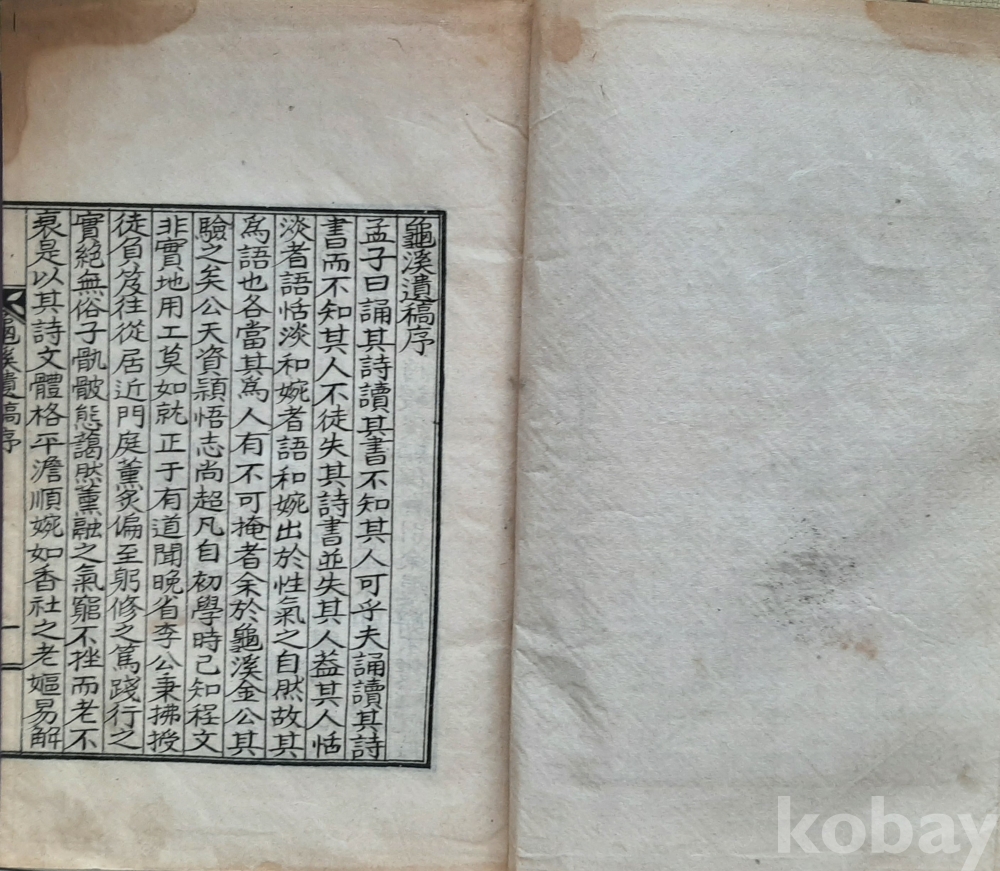 龜溪遺稿序
孟子曰誦其詩讀其書不知其人可乎夫誦讀其詩
書而不知其人不徒失其詩書並失其人盖其人恬
淡者語恬淡和婉者語和婉出於性氣之自然故其
爲語也各當其爲人有不可掩者余於龜溪金公其
驗之矣公天資穎悟志尚超凡自初學時已知程文
非實地用工莫如就正于有道聞晚省李公秉拂授
徒負笈往從居近門庭薰炙偏至躬修之篤踐行之
實絕無俗子骯骳態藹然薰融之氣窮不挫而老不
衰是以其詩文體格平澹順婉如香社之老嫗易解
龜溪遺稿序
一
kobay